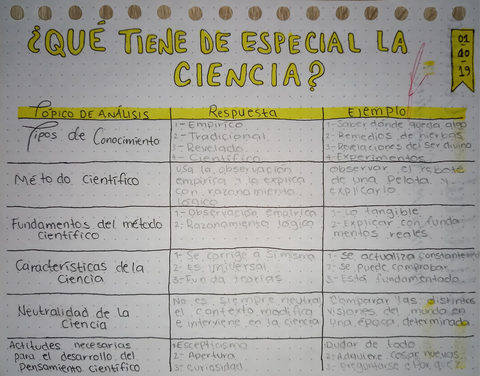 ¿QUÉ TIENE DE ESPECIAL LA
CIENCIA?
01
10
19
TÓPICO DE ANÁLISIS
Respuesta
Ejemplo
Tipos de Conocimiento
1- Empírico
2- Tradicional
3- Revelado
4- Científico
1- Saber dónde queda algo
2- Remedios de hierbas
3- Revelaciones del ser divino
4- Experimentos
Método Científico
Usa la observación
empírica y lo explica
con razonamiento
lógico
Observar el rebote
de una pelota y
explicarlo
Fundamentos del método
Científico
1- Observación empírica
2- Razonamiento lógico
1- Lo tangible
2- Explicar con funda-
mentos reales
Características de la
Ciencia
1- Se corrige a si misma
2- Es universal
3- Funda teorías
1- Se actualiza constantemente
2- Se puede comprobar
3- Está fundamentado
Neutralidad de la
Ciencia
No es siempre neutral
el contexto modifica
e interviene en la ciencia
Comparar las distintas
visiones del mundo en
una época determinada
Actitudes necesarias
para el desarrollo del
Pensamiento Científico
1- Escepticismo
2- Apertura
3- Curiosidad
Dudar de todo
2- Adquiere cosas nuevas
3- Preguntarse el por qué